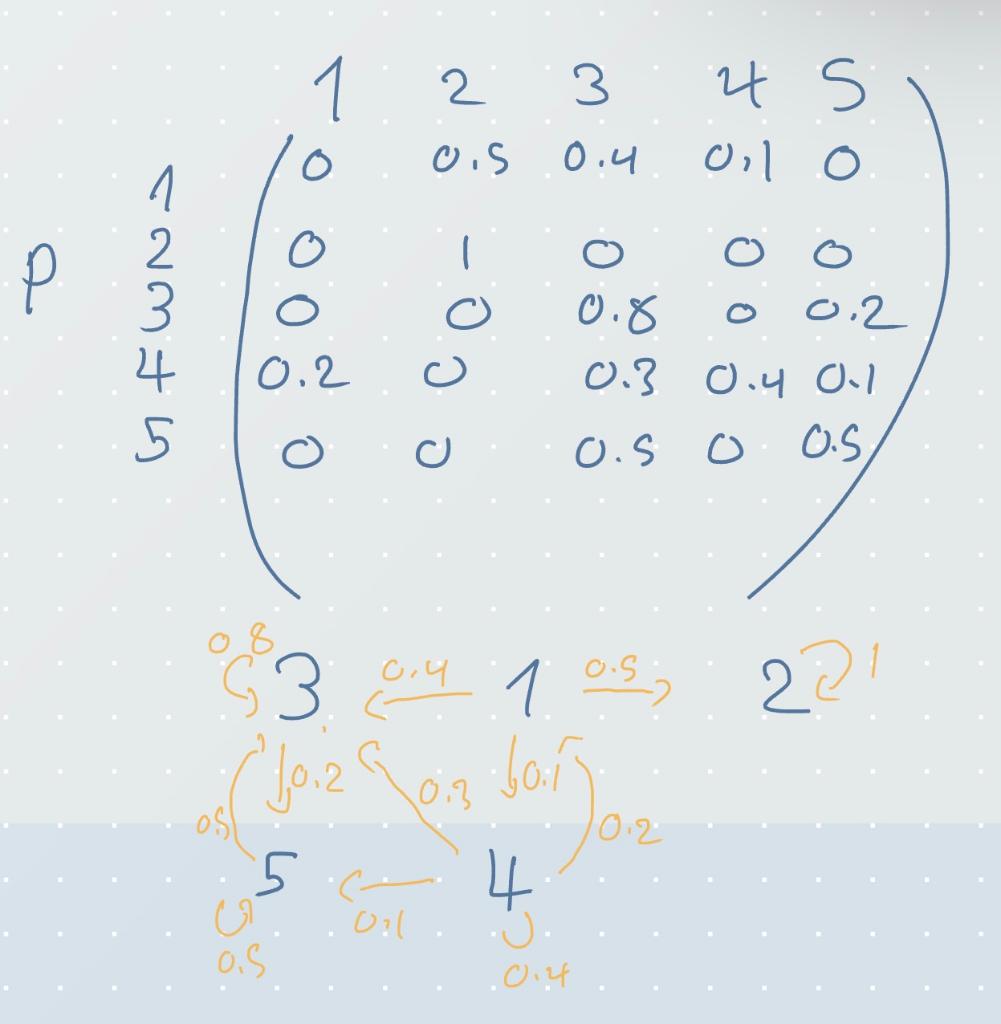 1 2 3 4 5
1 0 0.5 0.4 0,1 0
p 2 0 1 0 0 0
3 0 0 0.8 0 0.2
4 0.2 0 0.3 0.4 0.1
5 0 0 0.5 0 0.5
0.8 3 0.4 1 0.5 2 1
0.2 0.3 0.1
0.5 0.2
5 0.1 4
0.5 0.4